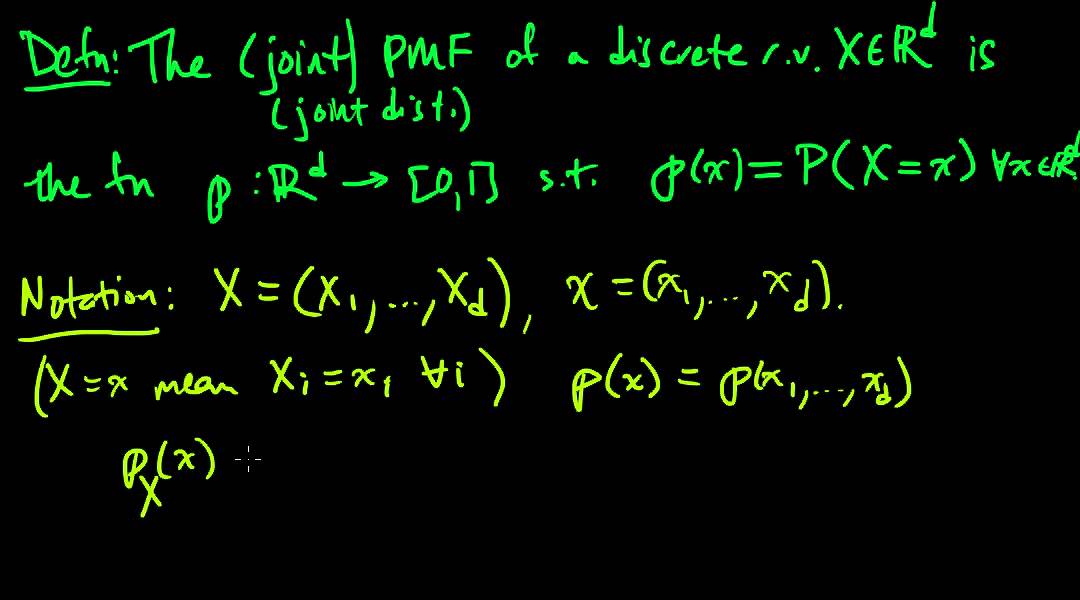 Defn: The (joint) PMF of a discrete r.v. X∈ℝ^d is
(joint dist.)
the fn p : ℝ^d → [0,1] s.t. p(x) = P(X = x) ∀x∈ℝ^d.
Notation: X = (X₁,...,X_d), x = (x₁,...,x_d).
(X = x mean X_i = x_i ∀i) p(x) = p(x₁,...,x_d)
p_X(x)